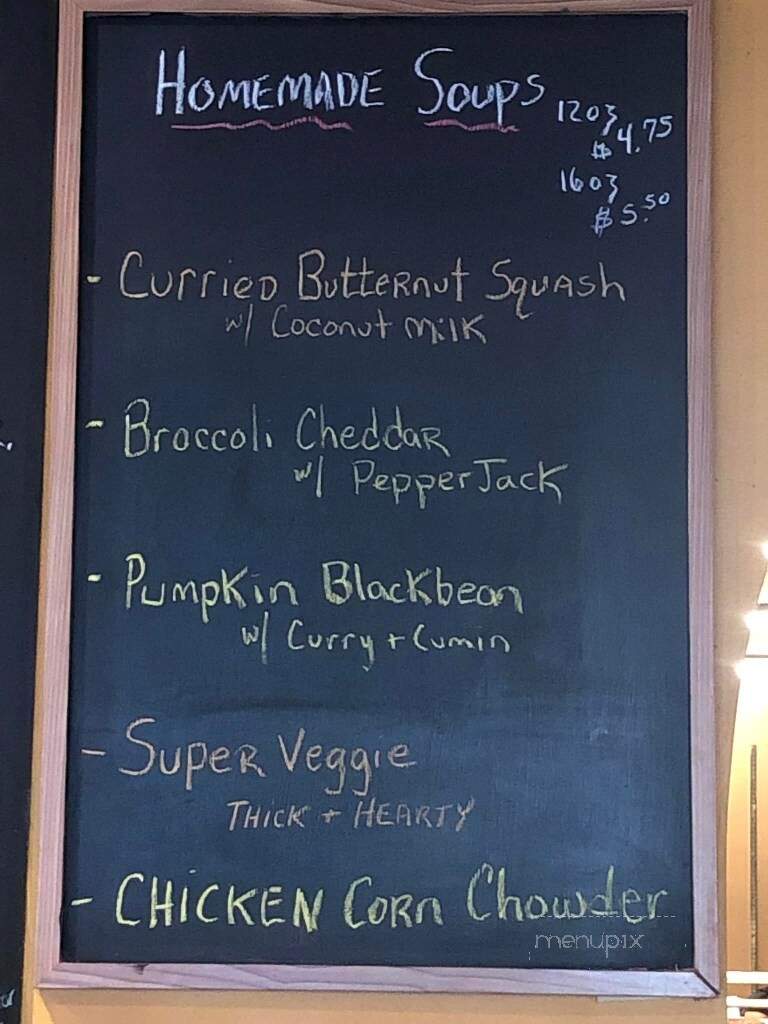 HOMEMADE SOUPS
12oz
$4.75
16oz
$5.50
- CURRIED BUTTERNUT SQUASH
w/ Coconut MILK
- Broccoli Cheddar
w/ Pepper Jack
- Pumpkin Blackbean
w/ Curry + Cumin
- Super Veggie
THICK + HEARTY
- CHICKEN CORN Chowder
menupix